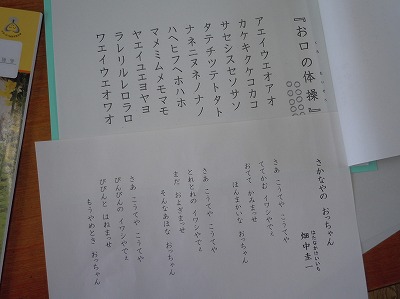 『お口の体操』
アエイウエオアオ
カケキクケコカコ
サセシスセソサソ
タテチツテトタト
ナネニヌネノナノ
ハヘヒフヘホハホ
マメミムメモマモ
ヤエイユエヨヤヨ
ラレリルレロラロ
ワエイウエオワオ
さかなやの おっちゃん
はたなかけいいち
畑中圭一
さあ こうてや こうてや
ててかむ イワシやでえ
おてて かみまっせ
ほんまかいな おっちゃん
さあ こうてや こうてや
とれとれの イワシやでえ
まだ およぎまっせ
そんなあほな おっちゃん
さあ こうてや こうてや
ぴんぴんの イワシやでえ
ぴぴんと はねまっせ
もうやめとき おっちゃん